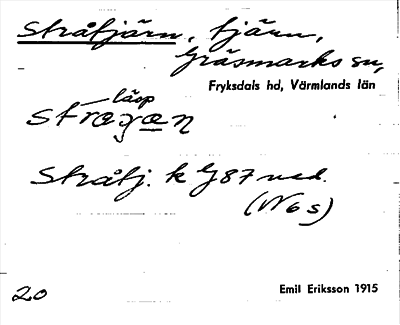 Stråtjärn, tjärn,
Gräsmarks sn,
Fryksdals hd, Värmlands län
läsp
Stråtj. k G87 ned.
(W6s)
20
Emil Eriksson 1915